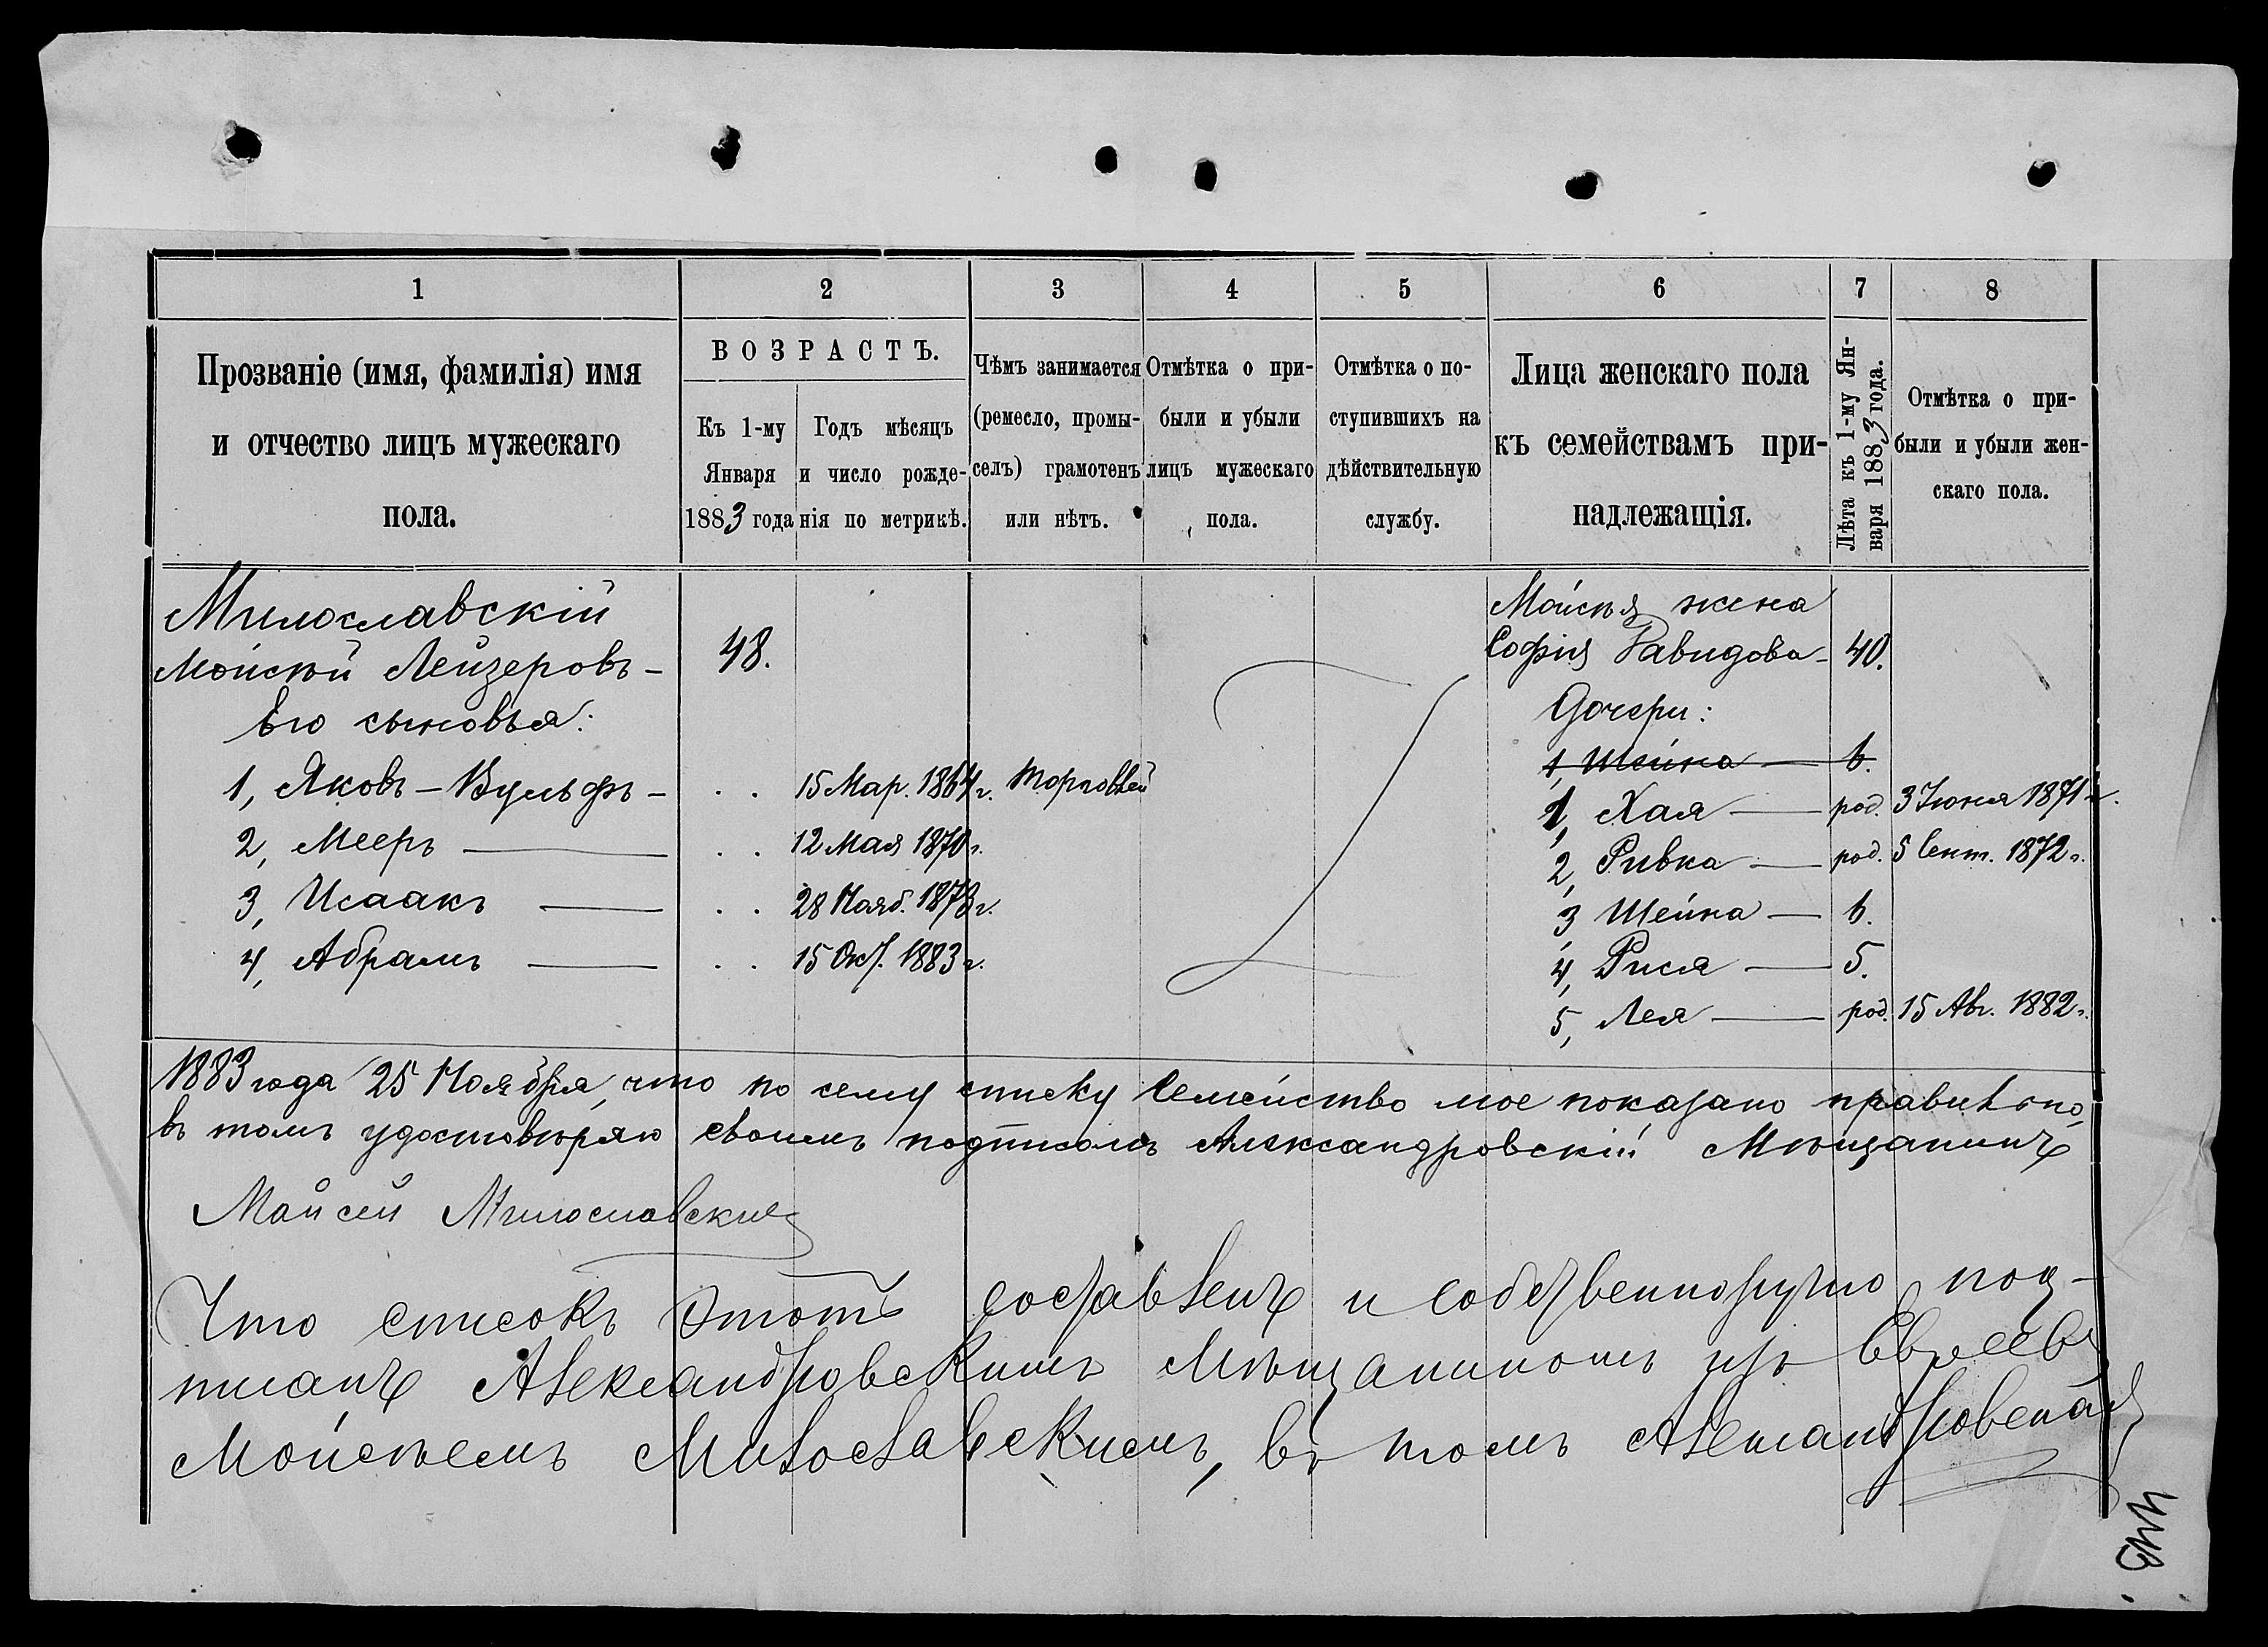 1
2
3
4
5
6
7
8
Прозваніе (имя, фамилія) имя
и отчество лицъ мужескаго
пола.
ВОЗРАСТЪ.
Къ 1-му
Января
1883 года
Годъ мѣсяцъ
и число рожде-
нія по метрикѣ.
Чѣмъ занимается
(ремесло, промы-
селъ) грамотенъ
или нѣтъ.
Отмѣтка о при-
были и убыли
лицъ мужескаго
пола.
Отмѣтка о по-
ступившихъ на
дѣйствительную
службу.
Лица женскаго пола
къ семействамъ при-
надлежащія.
Лѣта къ 1-му Ян-
варя 1883 года.
Отмѣтка о при-
были и убыли жен-
скаго пола.
Милославскій
Мойсѣй Лейзеровъ - 48.
Его сыновья:
1, Яковъ - Вульфъ - . . 15 Мар. 1864 г. Торговлей
2, Мееръ — . . 12 Мая 1870 г.
3, Исаакъ — . . 28 Нояб. 1878 г.
4, Абрамъ — . . 15 Окт. 1883 г.
Мойсѣя жена
Софія Давидова - 40.
Дочери:
1, Шейна — 6.
1, Хая — род. 3 Іюня 1871 г.
2, Ривка — род. 5 Сент. 1872 г.
3 Шейна — 6.
4, Рися — 5.
5, Лея — род. 15 Авг. 1882 г.
1883 года 25 Ноября, что по сему списку Семейство мое показано правильно,
въ томъ удостовѣряю своимъ подписомъ Александровскій Мѣщанинъ
Мойсей Милославский
Что списокъ этотъ составленъ и собственноручно под-
писанъ Александровскимъ Мѣщаниномъ изъ Евреевъ
Мойсѣемъ Милославскимъ, въ томъ Александровская